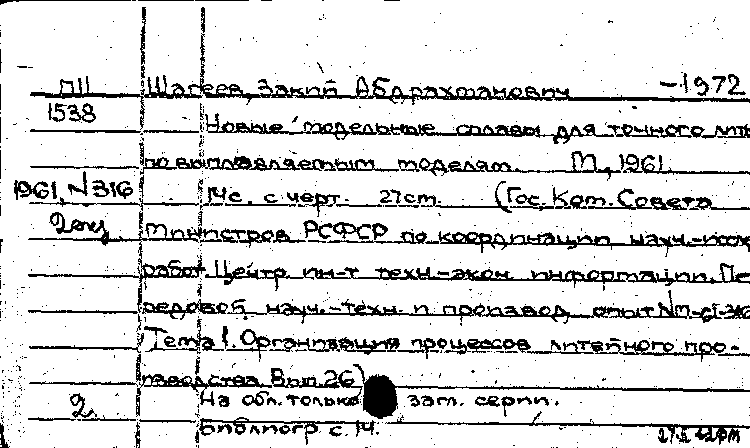 П11 Шагеев, Закий Абдрахманович -1972
1538 Новые модельные сплавы для точного лить
по выплавляемым моделям. М., 1961.
1961, N 316 14с. с черт. 27см. (Гос. Ком. Совета
2 экз. Министров РСФСР по координации науч.-иссл
работ. Центр. ин-т техн.-экон. информации. Пе-
редовой науч.-техн. и производ. опыт
Тема 1. Организация процессов литейного про-
изводства Вып. 26)
2 На обл. только загл. серии.
Библиогр. с. 14.